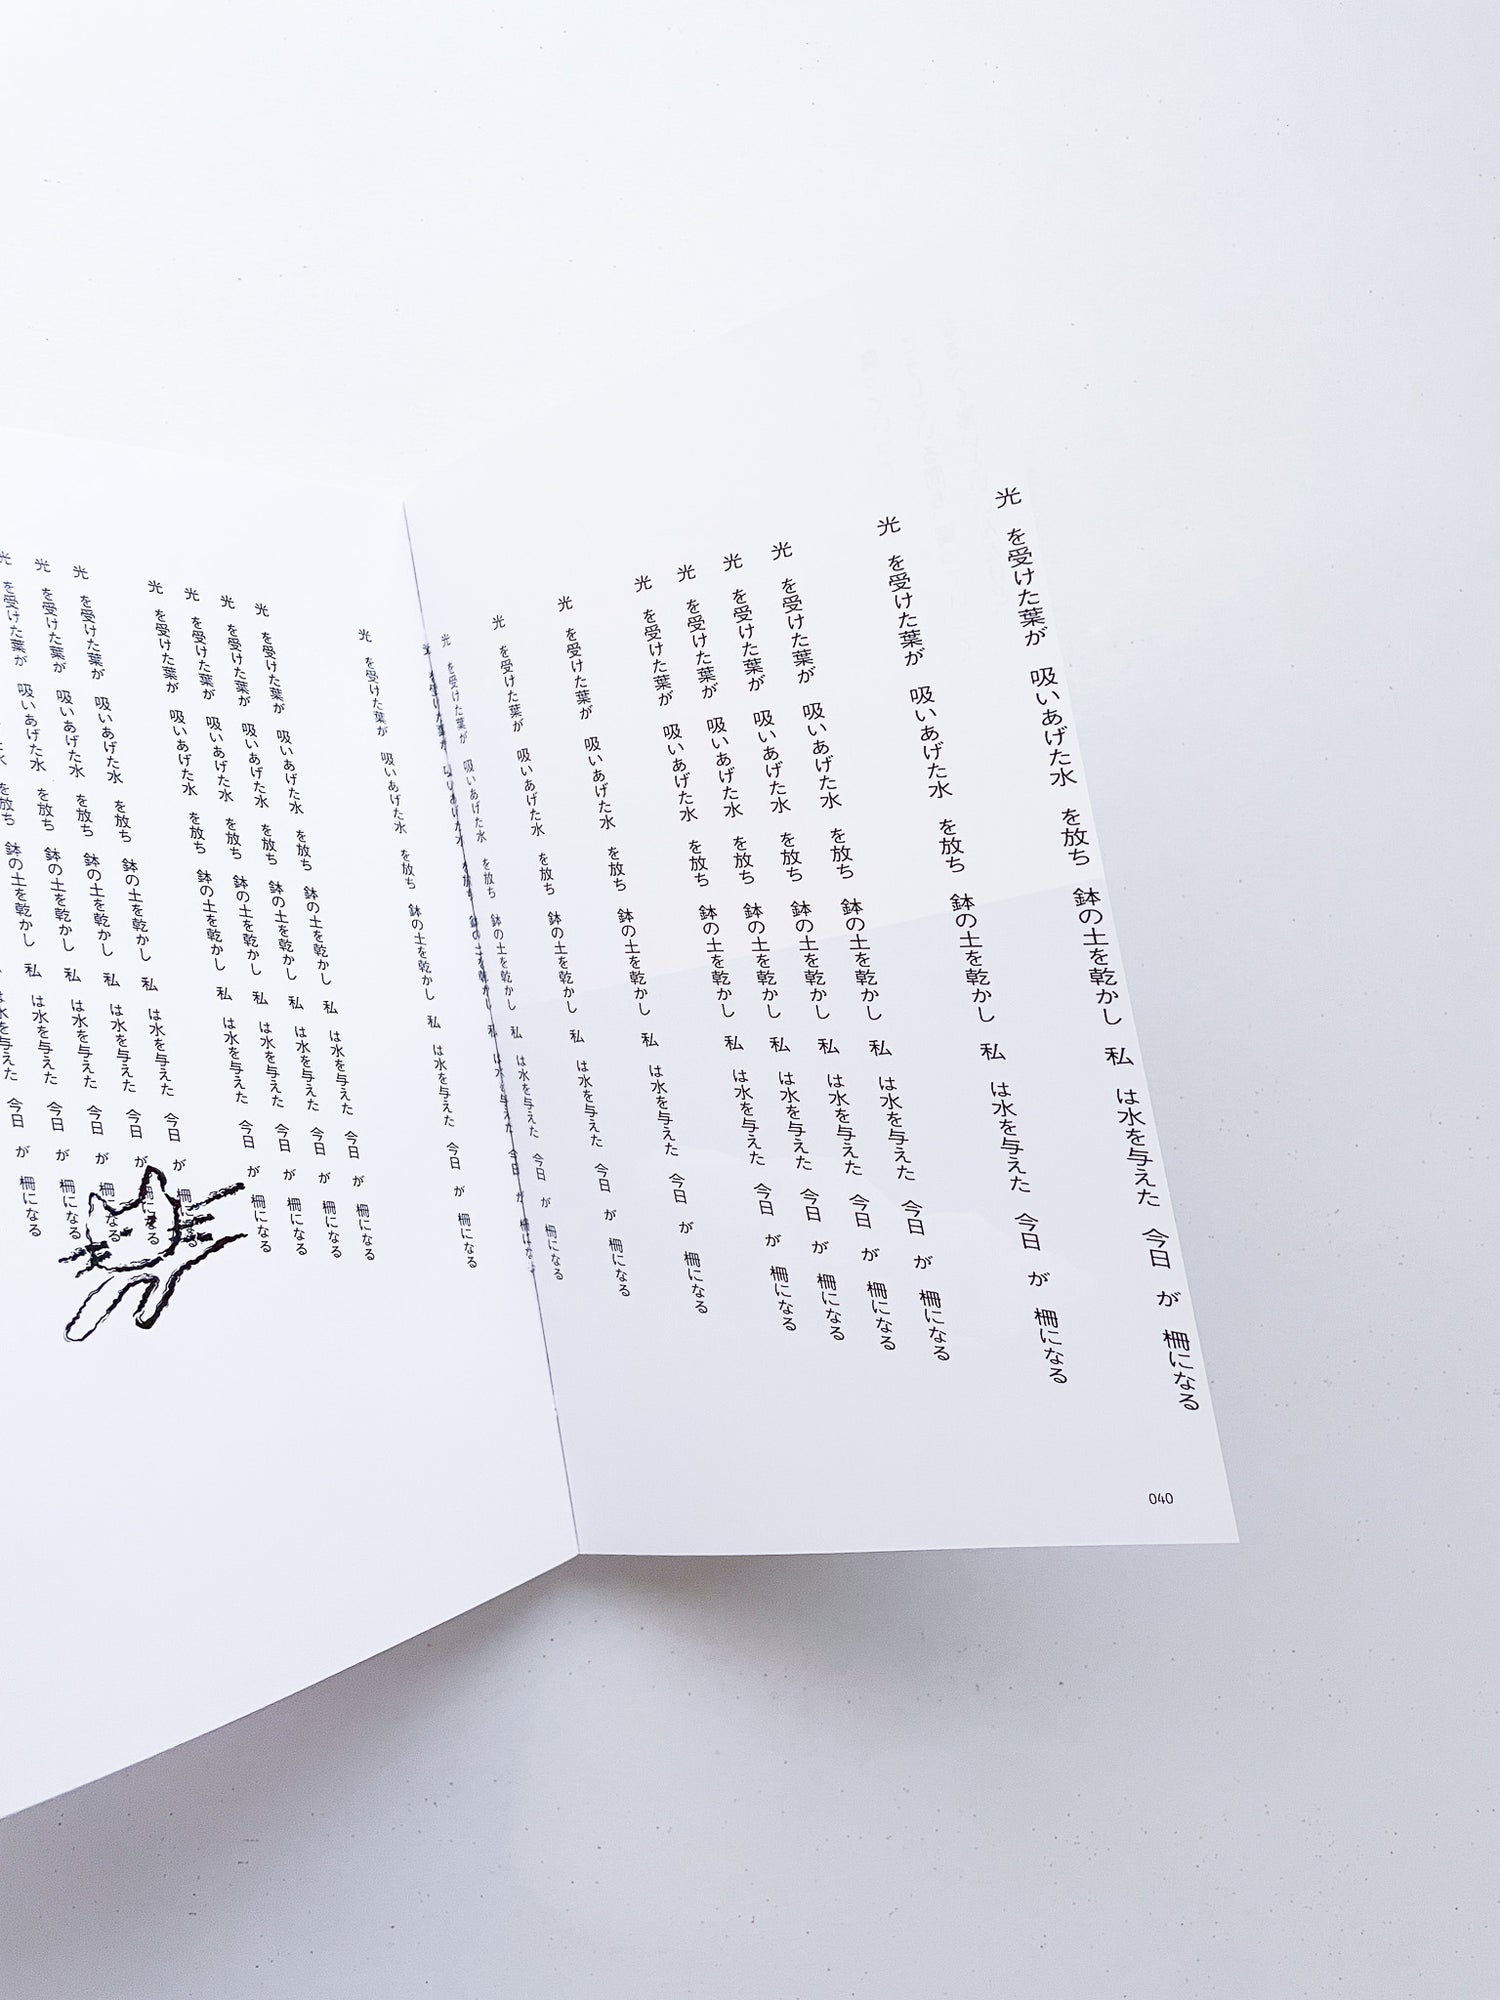 光　を受けた葉が　吸いあげた水　を放ち　鉢の土を乾かし　私　は水を与えた　今日　が　柵になる
光　を受けた葉が　吸いあげた水　を放ち　鉢の土を乾かし　私　は水を与えた　今日　が　柵になる
光　を受けた葉が　吸いあげた水　を放ち　鉢の土を乾かし　私　は水を与えた　今日　が　柵になる
光　を受けた葉が　吸いあげた水　を放ち　鉢の土を乾かし　私　は水を与えた　今日　が　柵になる
光　を受けた葉が　吸いあげた水　を放ち　鉢の土を乾かし　私　は水を与えた　今日　が　柵になる
光　を受けた葉が　吸いあげた水　を放ち　鉢の土を乾かし　私　は水を与えた　今日　が　柵になる
光　を受けた葉が　吸いあげた水　を放ち　鉢の土を乾かし　私　は水を与えた　今日　が　柵になる
光　を受けた葉が　吸いあげた水　を放ち　鉢の土を乾かし　私　は水を与えた　今日　が　柵になる
光　を受けた葉が　吸いあげた水　を放ち　鉢の土を乾かし　私　は水を与えた　今日　が　柵になる
光　を受けた葉が　吸いあげた水　を放ち　鉢の土を乾かし　私　は水を与えた　今日　が　柵になる
040
光　を受けた葉が　吸いあげた水　を放ち　鉢の土を乾かし　私　は水を与えた　今日　が　柵になる
光　を受けた葉が　吸いあげた水　を放ち　鉢の土を乾かし　私　は水を与えた　今日　が　柵になる
光　を受けた葉が　吸いあげた水　を放ち　鉢の土を乾かし　私　は水を与えた　今日　が　柵になる
光　を受けた葉が　吸いあげた水　を放ち　鉢の土を乾かし　私　は水を与えた　今日　が　柵になる
光　を受けた葉が　吸いあげた水　を放ち　鉢の土を乾かし　私　は水を与えた　今日　が　柵になる
光　を受けた葉が　吸いあげた水　を放ち　鉢の土を乾かし　私　は水を与えた　今日　が　柵になる
光　を受けた葉が　吸いあげた水　を放ち　鉢の土を乾かし　私　は水を与えた　今日　が　柵になる
光　を受けた葉が　吸いあげた水　を放ち　鉢の土を乾かし　私　は水を与えた　今日　が　柵になる
を放ち　鉢の土を乾かし　私　は水を与えた　今日　が　柵になる
は水を与えた　今日　が　柵になる